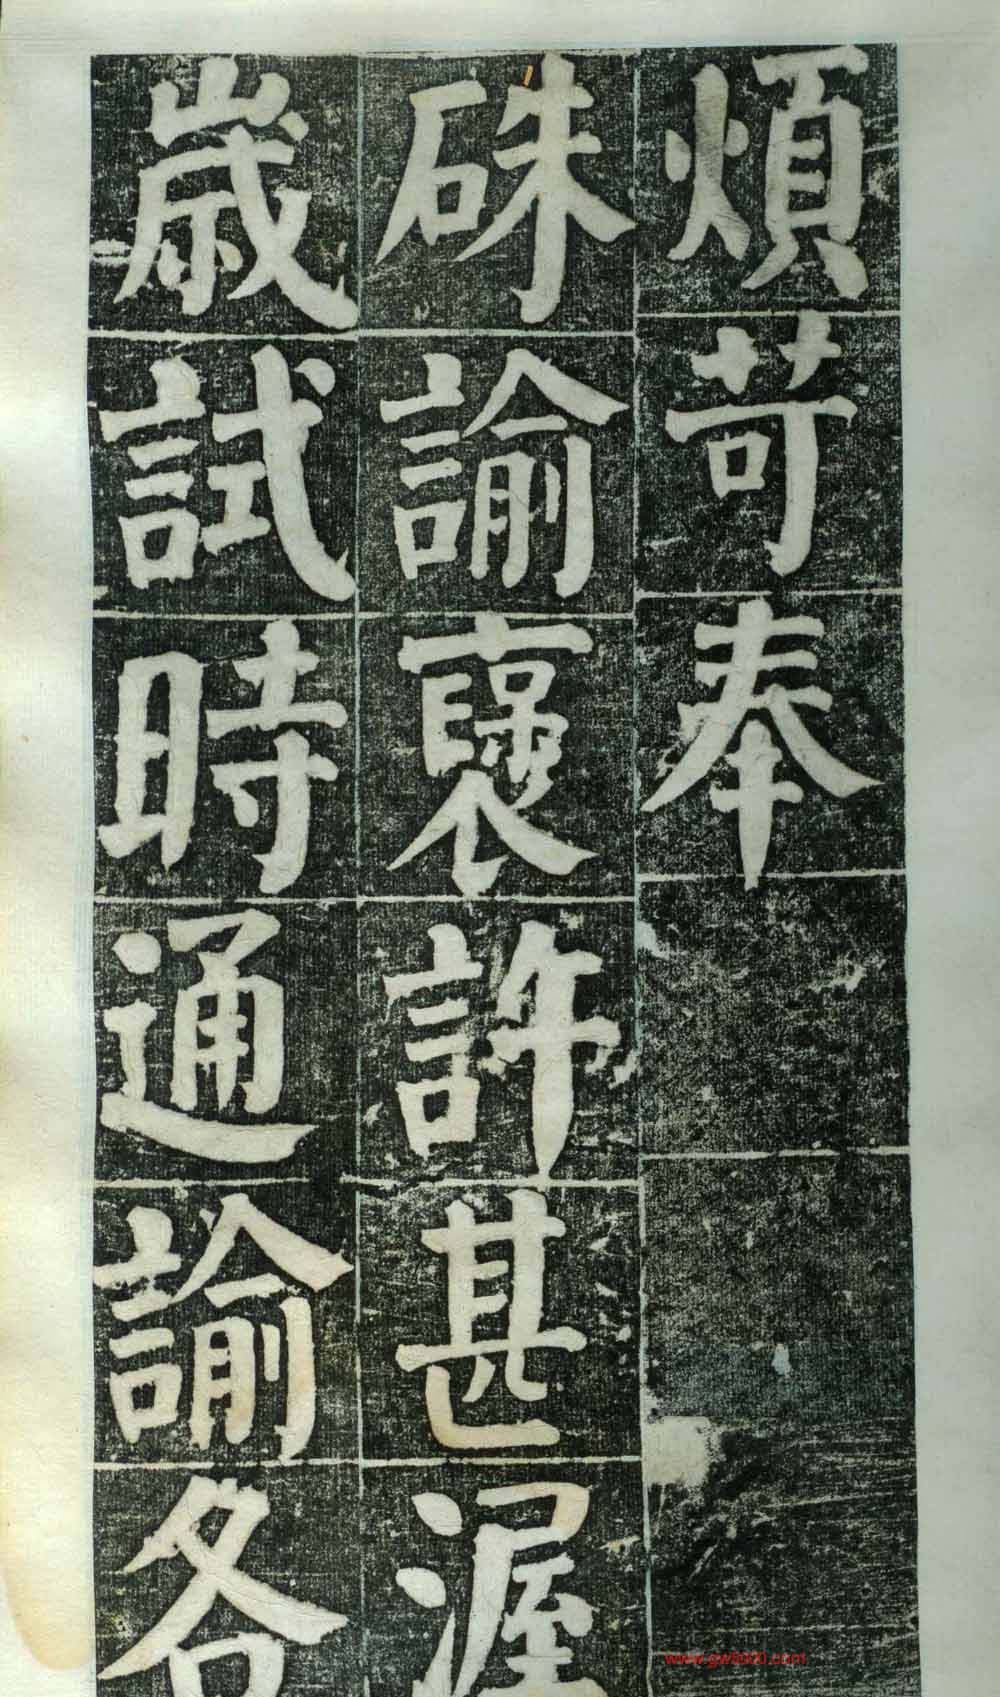 煩苛奉
硃諭褒許甚渥
歲試時通諭各
www.gw5000.com